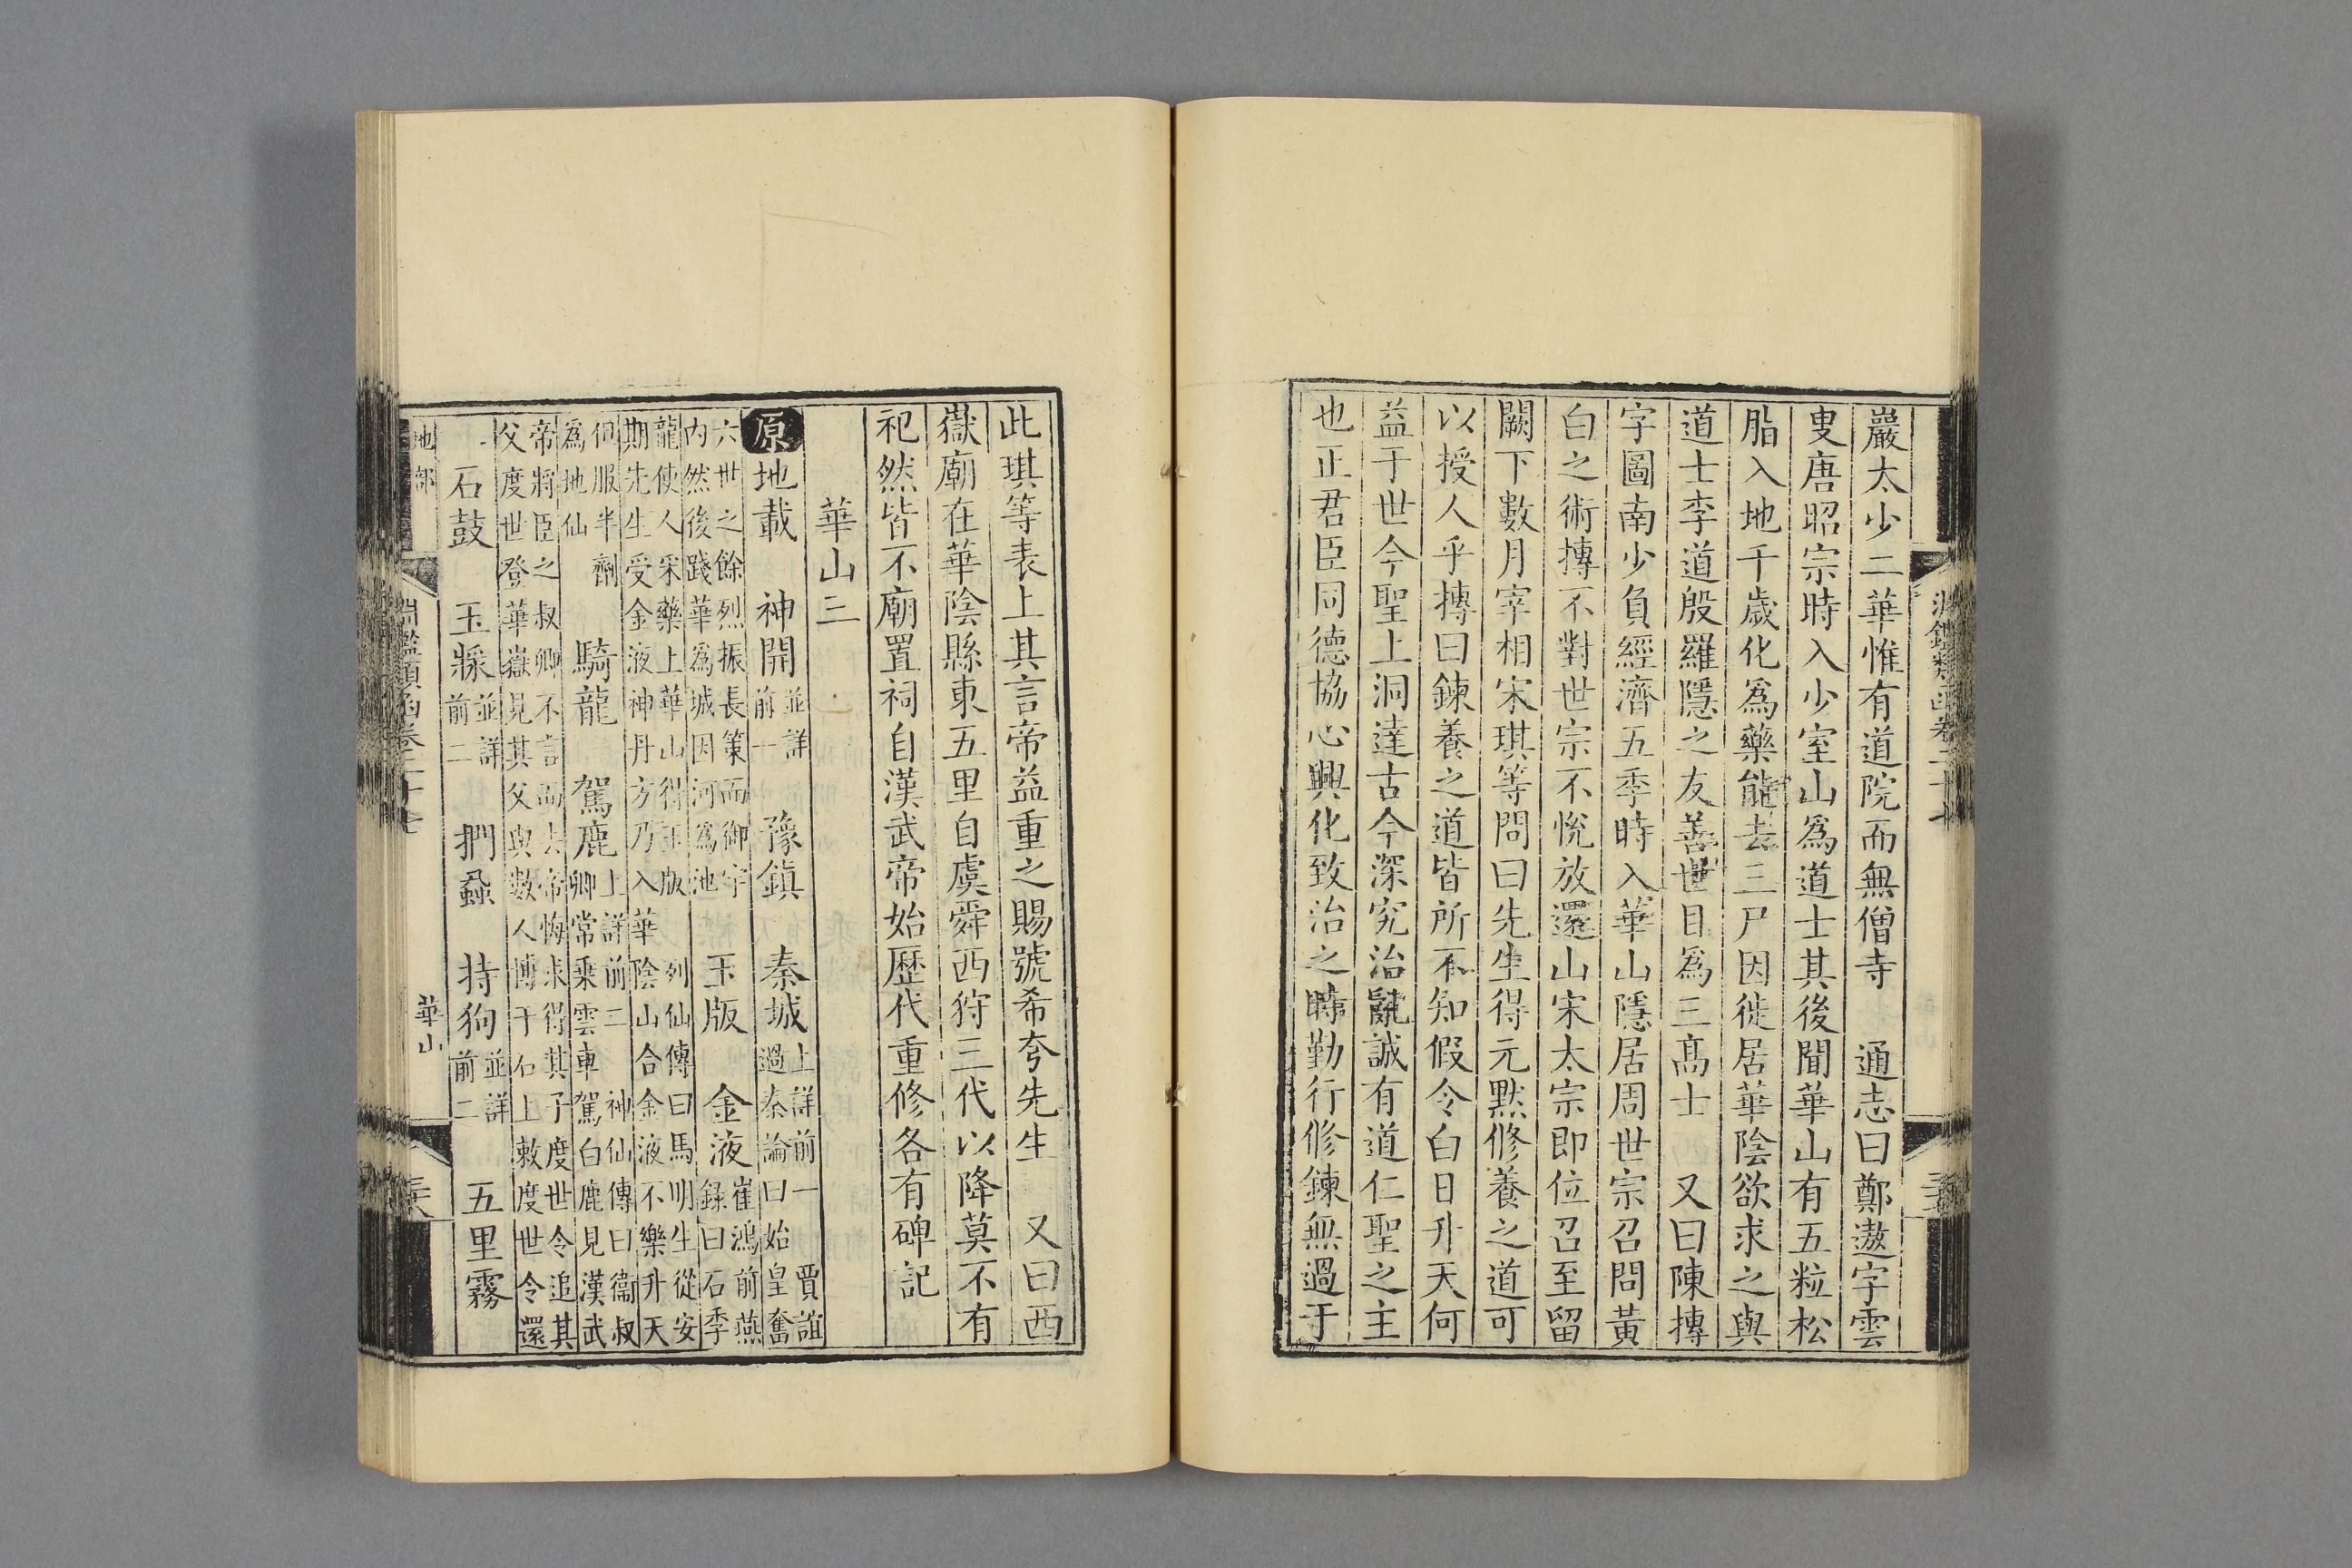 淵鑑類函卷二十七
巖太少二華惟有道院而無僧寺　通志曰鄭遨字雲
叟唐昭宗時入少室山爲道士其後聞華山有五粒松
脂入地千歲化爲藥能去三尸因徙居華陰欲求之與
道士李道殷羅隱之友善世目爲三高士　又曰陳摶
字圖南少負經濟五季時入華山隱居周世宗召問黃
白之術摶不對世宗不悅放還山宋太宗卽位召至留
闕下數月宰相宋琪等問曰先生得元默修養之道可
以授人乎摶曰鍊養之道皆所不知假令白日升天何
益于世今聖上洞達古今深究治亂誠有道仁聖之主
也正君臣同德協心興化致治之時勤行修鍊無過于
此琪等表上其言帝益重之賜號希夸先生　又曰西
嶽廟在華陰縣東五里自虞舜西狩三代以降莫不有
祀然皆不廟置祠自漢武帝始歷代重修各有碑記
華山三
原地載　神開並詳前一　豫鎭　秦城上詳前一　賈誼過秦論曰始皇奮
六世之餘烈振長策而御宇內然後踐華爲城因河爲池　玉版　金液崔鴻前燕錄曰石季
龍使人采藥上華山得玉版　列仙傳曰馬明生從安期先生受金液神丹方乃入華陰山合金液不樂升天
但服半劑爲地仙　騎龍　駕鹿上詳前二　神仙傳曰衞叔卿常乘雲車駕白鹿見漢武
帝將臣之叔卿不言而去帝悔求得其子度世令追其父度世登華嶽見其父與數人博于石上敕度世令還
石鼓　玉漿並詳前二　捫蝨　持狗並詳前二　五里霧
地部
淵鑑類函卷二十七
華山